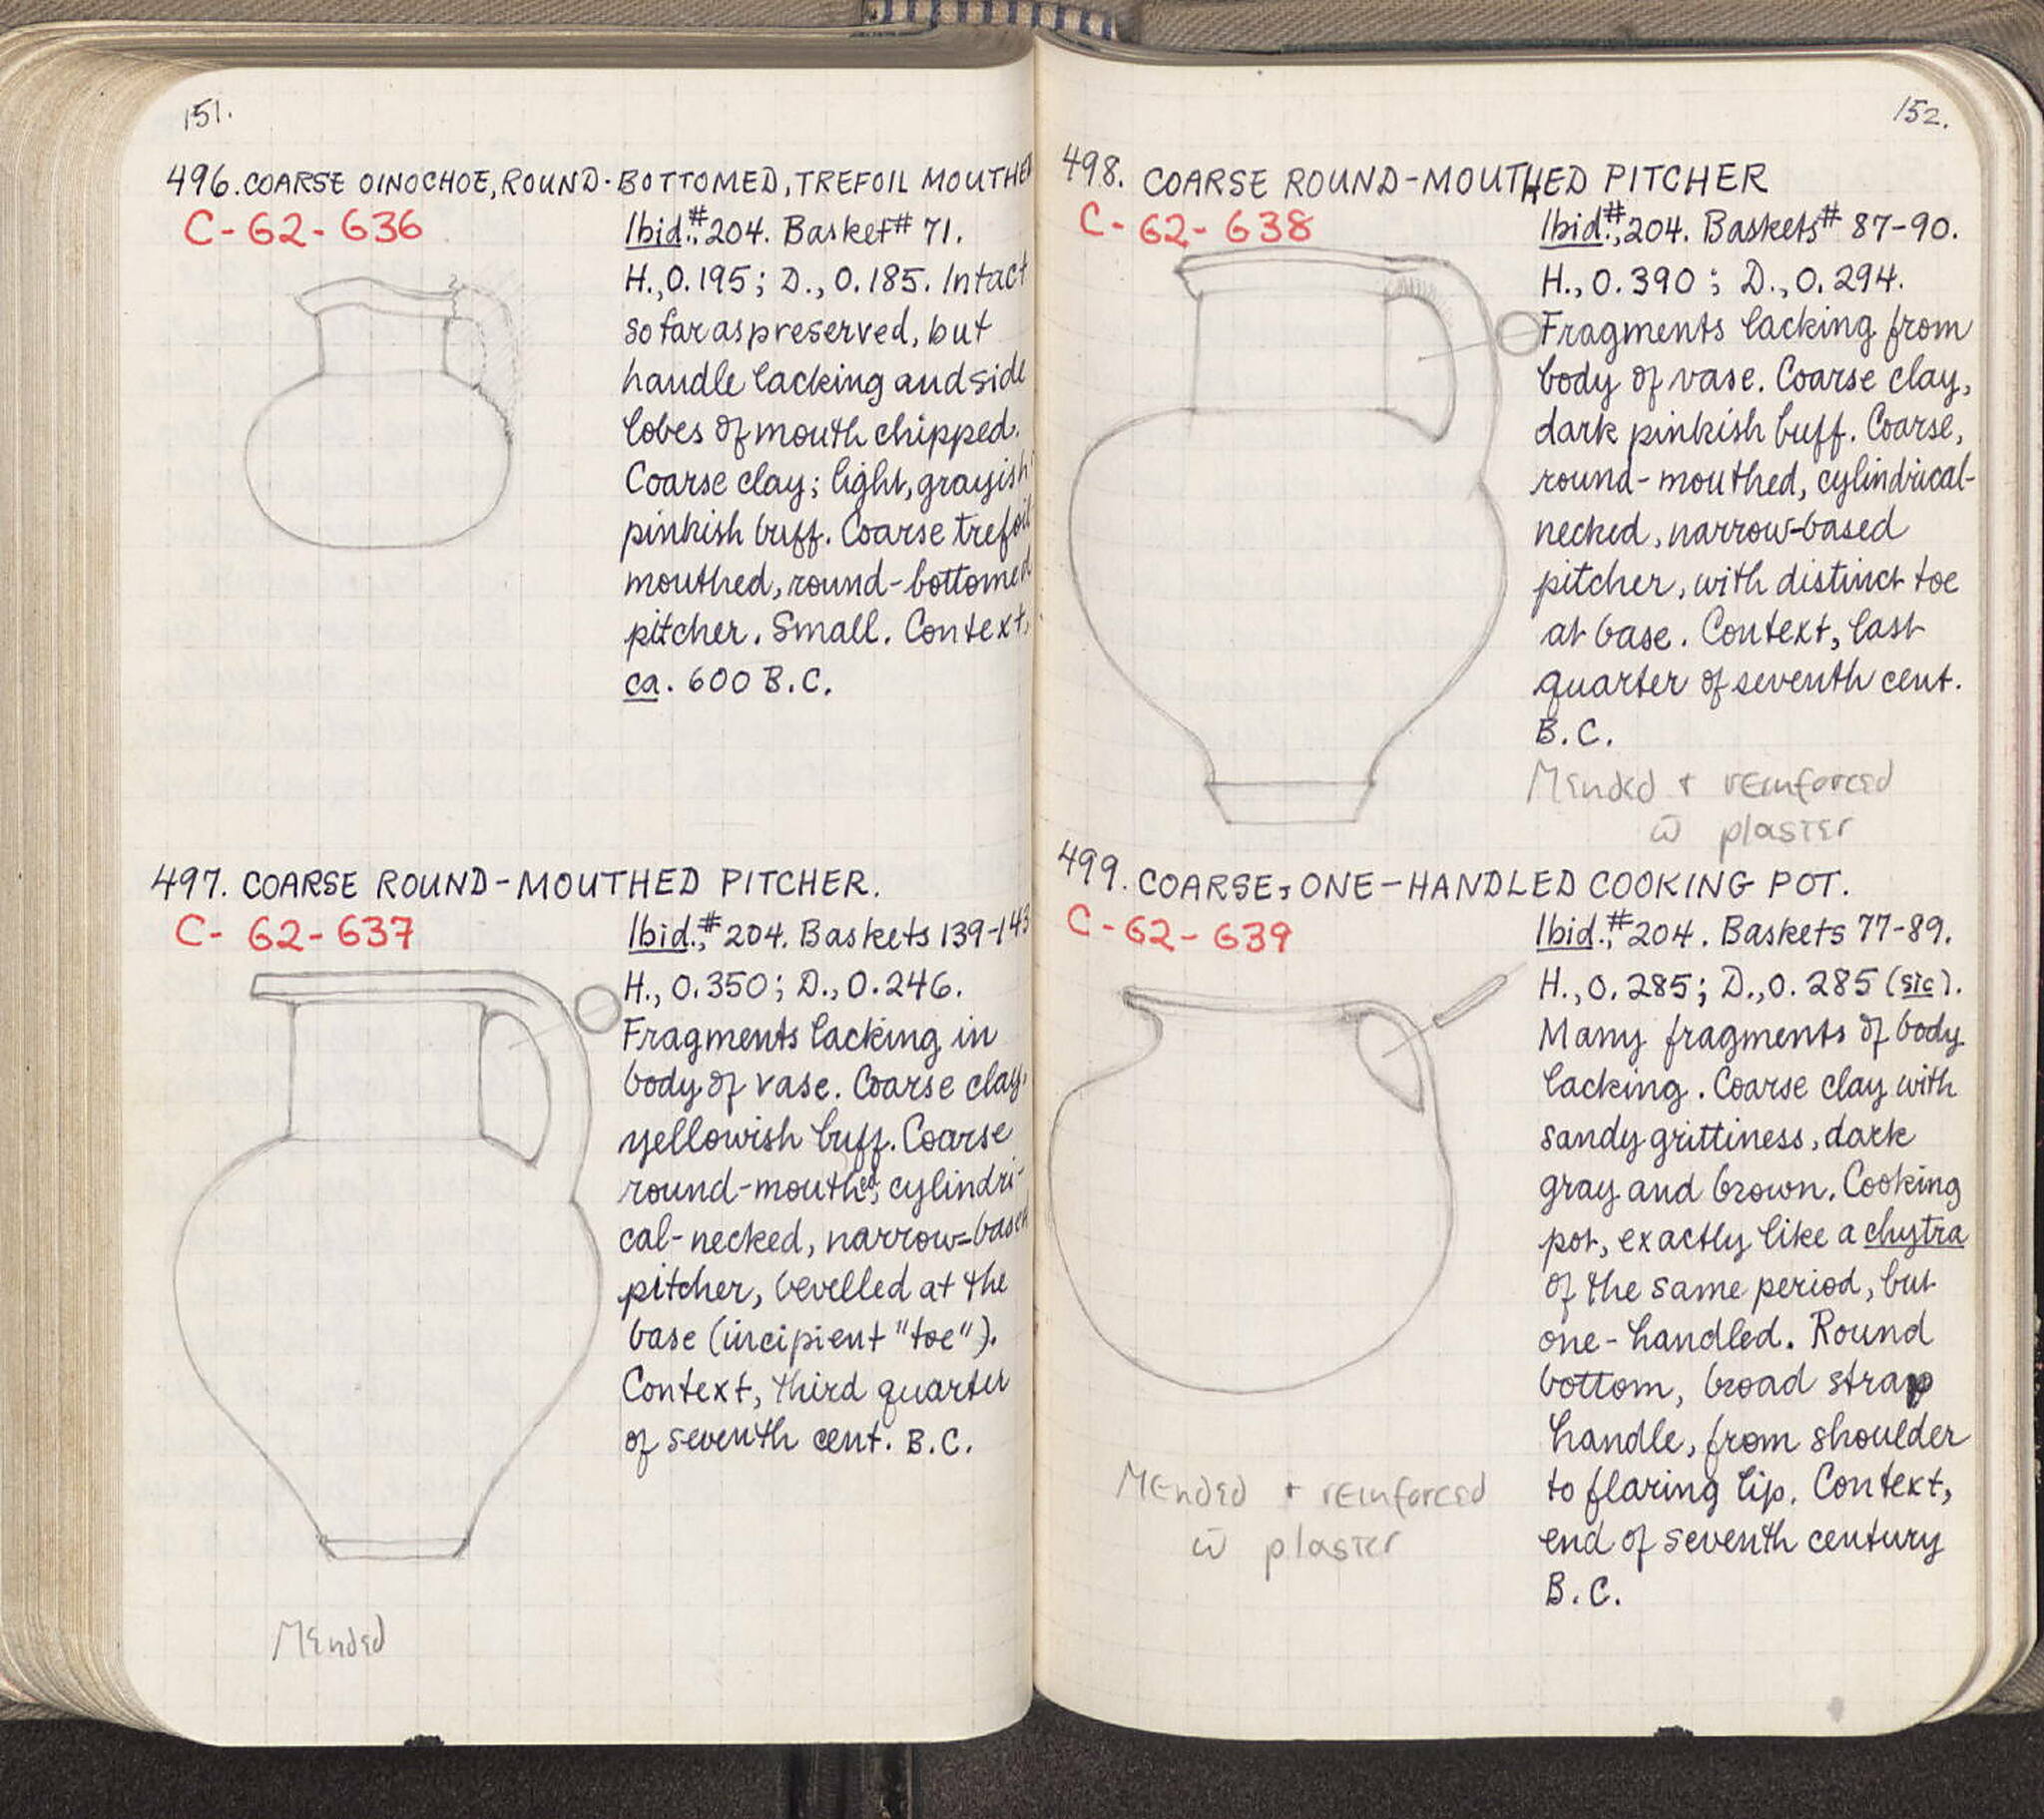 151.
496. COARSE OINOCHOE, ROUND-BOTTOMED, TREFOIL MOUTHED
C-62-636
Ibid., #204. Basket # 71.
H., 0.195; D., 0.185. Intact
so far as preserved, but
handle lacking and side
lobes of mouth chipped.
Coarse clay; light, grayish
pinkish buff. Coarse trefoil
mouthed, round-bottomed
pitcher. Small. Context,
ca. 600 B.C.
497. COARSE ROUND-MOUTHED PITCHER.
C-62-637
Ibid., #204. Baskets 139-143
H., 0.350; D., 0.246.
Fragments lacking in
body of vase. Coarse clay,
yellowish buff. Coarse
round-mouthed, cylindri-
cal-necked, narrow-based
pitcher, bevelled at the
base (incipient "toe").
Context, third quarter
of seventh cent. B.C.
Mended
152.
498. COARSE ROUND-MOUTHED PITCHER
C-62-638
Ibid., #204. Baskets # 87-90.
H., 0.390; D., 0.294.
Fragments lacking from
body of vase. Coarse clay,
dark pinkish buff. Coarse,
round-mouthed, cylindrical-
necked, narrow-based
pitcher, with distinct toe
at base. Context, last
quarter of seventh cent.
B.C.
Mended + reinforced
w̄ plaster
499. COARSE, ONE-HANDLED COOKING POT.
C-62-639
Ibid., #204. Baskets 77-89.
H., 0.285; D., 0.285 (sic).
Many fragments of body
lacking. Coarse clay with
sandy grittiness, dark
gray and brown. Cooking
pot, exactly like a chytra
of the same period, but
one-handled. Round
bottom, broad strap
handle, from shoulder
to flaring lip. Context,
end of seventh century
B.C.
Mended + reinforced
w̄ plaster